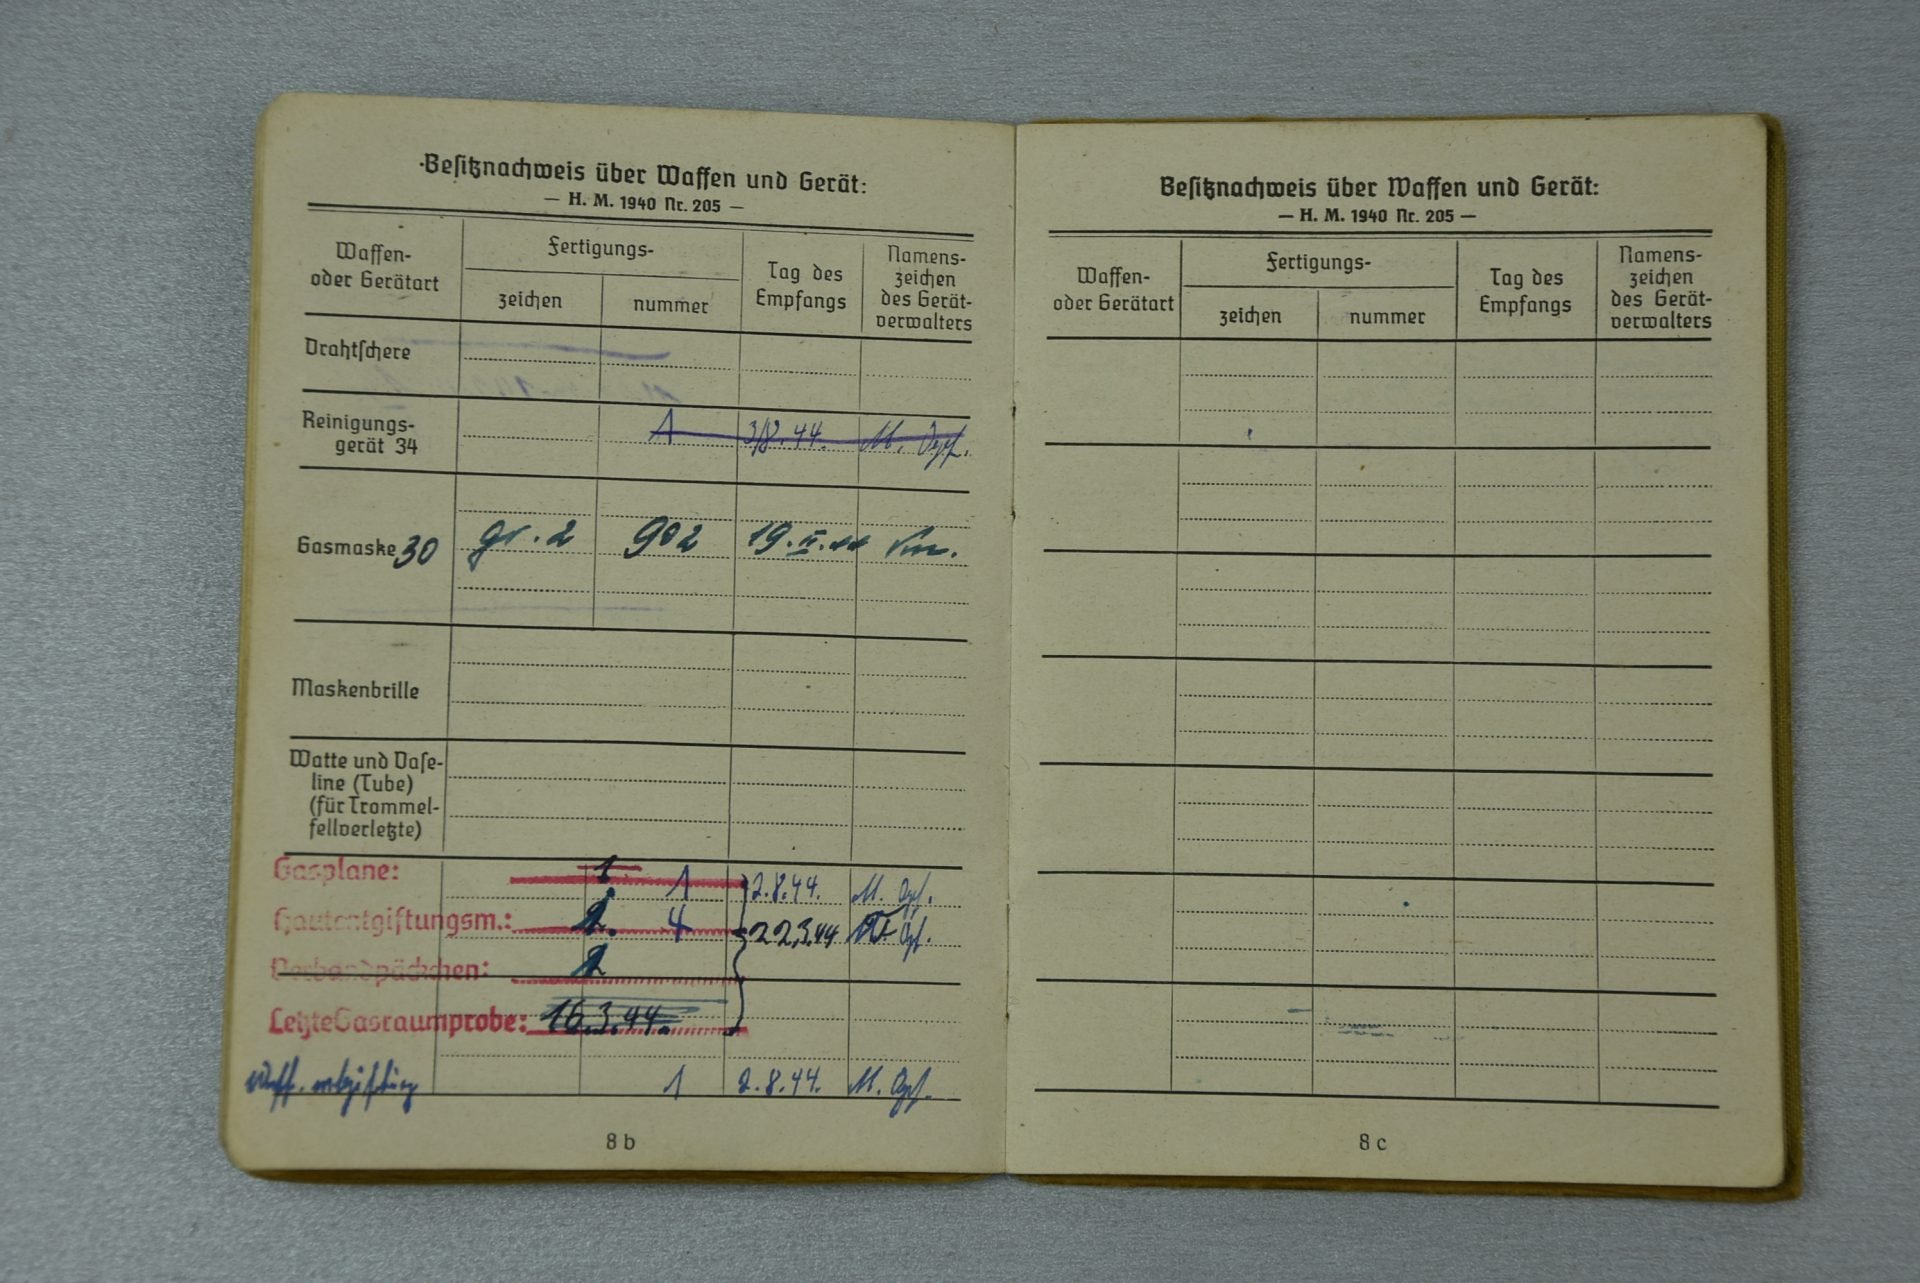 Besitznachweis über Waffen und Gerät:
— H. M. 1940 Nr. 205 —
Waffen-
oder Gerätart
Fertigungs-
zeichen
nummer
Tag des
Empfangs
Namens-
zeichen
des Gerät-
verwalters
Drahtschere
Reinigungs-
gerät 34
1 3/8.44. M.
Gasmaske 30 gr. 2 902 19.
Maskenbrille
Watte und Vase-
line (Tube)
(für Trommel-
fellverletzte)
Gasplane: 1 1 2.8.44. M.
Hautentgiftungsm.: 2. 4 22.3.44
Verbandpäckchen: 2
Letzte Gasraumprobe: 16.3.44.
1 2.8.44. M.
8 b
Besitznachweis über Waffen und Gerät:
— H. M. 1940 Nr. 205 —
Waffen-
oder Gerätart
Fertigungs-
zeichen
nummer
Tag des
Empfangs
Namens-
zeichen
des Gerät-
verwalters
8 c